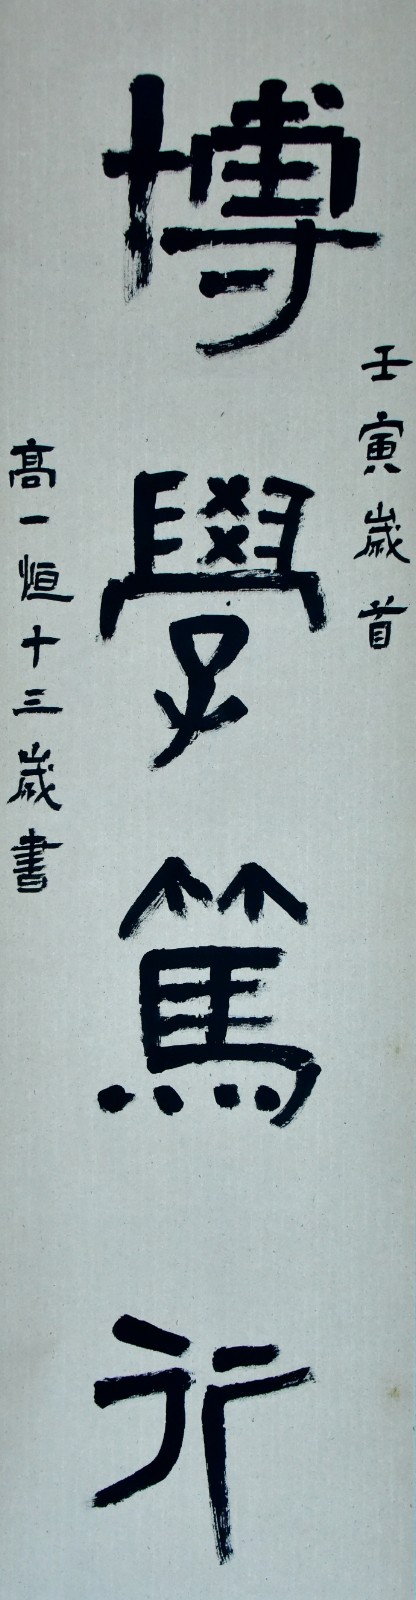 壬寅歲首
博學篤行
高一恒十三歲書